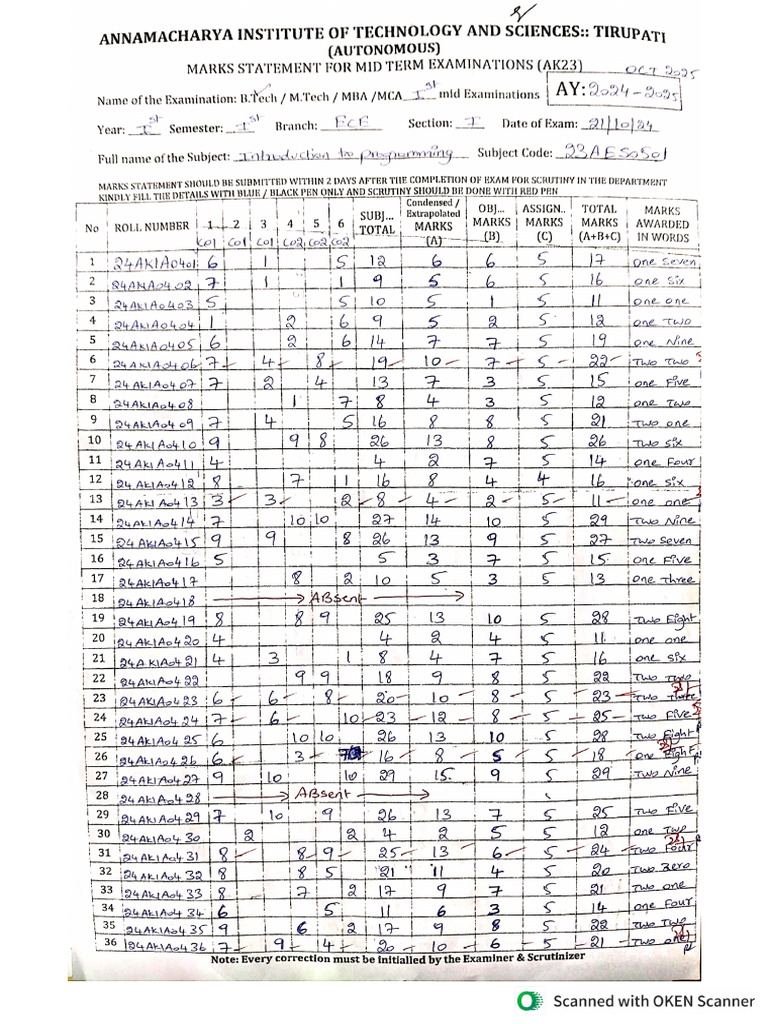 ANNAMACHARYA INSTITUTE OF TECHNOLOGY AND SCIENCES:: TIRUPATI
(AUTONOMOUS)
MARKS STATEMENT FOR MID TERM EXAMINATIONS (AK23)
OCT 2025
Name of the Examination: B.Tech / M.Tech / MBA /MCA Ist mid Examinations AY: 2024-2025
Year: Ist Semester: Ist Branch: ECE Section: I Date of Exam: 21/10/24
Full name of the Subject: Introduction to programming Subject Code: 23AES0501
MARKS STATEMENT SHOULD BE SUBMITTED WITHIN 2 DAYS AFTER THE COMPLETION OF EXAM FOR SCRUTINY IN THE DEPARTMENT
KINDLY FILL THE DETAILS WITH BLUE / BLACK PEN ONLY AND SCRUTINY SHOULD BE DONE WITH RED PEN
No ROLL NUMBER 1 2 3 4 5 6 SUBJ... TOTAL Condensed / Extrapolated MARKS (A) OBJ... MARKS (B) ASSIGN.. MARKS (C) TOTAL MARKS (A+B+C) MARKS AWARDED IN WORDS
CO1 CO1 CO1 CO2 CO2 CO2
1 24AK1A0401 6 1 5 12 6 6 5 17 one seven
2 24AK1A0402 7 1 1 9 5 6 5 16 one six
3 24AK1A0403 5 5 10 5 1 5 11 one one
4 24AK1A0404 1 2 6 9 5 2 5 12 one Two
5 24AK1A0405 6 2 6 14 7 7 5 19 one Nine
6 24AK1A0406 7 4 8 19 10 7 5 22 Two Two
7 24AK1A0407 7 2 4 13 7 3 5 15 one Five
8 24AK1A0408 1 7 8 4 3 5 12 one Two
9 24AK1A0409 7 4 5 16 8 8 5 21 Two one
10 24AK1A0410 9 9 8 26 13 8 5 26 Two six
11 24AK1A0411 4 4 2 7 5 14 one Four
12 24AK1A0412 8 7 1 16 8 4 4 16 one six
13 24AK1A0413 3 3 2 8 4 2 5 11 one one
14 24AK1A0414 7 10 10 27 14 10 5 29 Two Nine
15 24AK1A0415 9 9 8 26 13 9 5 27 Two Seven
16 24AK1A0416 5 5 3 7 5 15 one Five
17 24AK1A0417 8 2 10 5 3 5 13 one three
18 24AK1A0418 ABsent
19 24AK1A0419 8 8 9 25 13 10 5 28 Two Eight
20 24AK1A0420 4 4 2 4 5 11 one one
21 24AK1A0421 4 3 1 8 4 7 5 16 one six
22 24AK1A0422 9 9 18 9 8 5 22 Two Two
23 24AK1A0423 6 6 8 20 10 8 5 23 Two three
24 24AK1A0424 7 6 10 23 12 8 5 25 Two Five
25 24AK1A0425 6 10 10 26 13 10 5 28 Two Eight
26 24AK1A0426 6 3 7 16 8 5 5 18 one Eight
27 24AK1A0427 9 10 10 29 15 9 5 29 Two Nine
28 24AK1A0428 ABsent
29 24AK1A0429 7 10 9 26 13 7 5 25 Two Five
30 24AK1A0430 2 2 4 2 5 5 12 one Two
31 24AK1A0431 8 8 9 25 13 6 5 24 Two Four
32 24AK1A0432 8 8 5 21 11 4 5 20 Two Zero
33 24AK1A0433 8 7 2 17 9 7 5 21 Two one
34 24AK1A0434 6 5 11 6 3 5 14 one Four
35 24AK1A0435 9 6 2 17 9 8 5 22 Two Two
36 24AK1A0436 7 9 4 20 10 6 5 21 Two one
Note: Every correction must be initialled by the Examiner & Scrutinizer
Scanned with OKEN Scanner